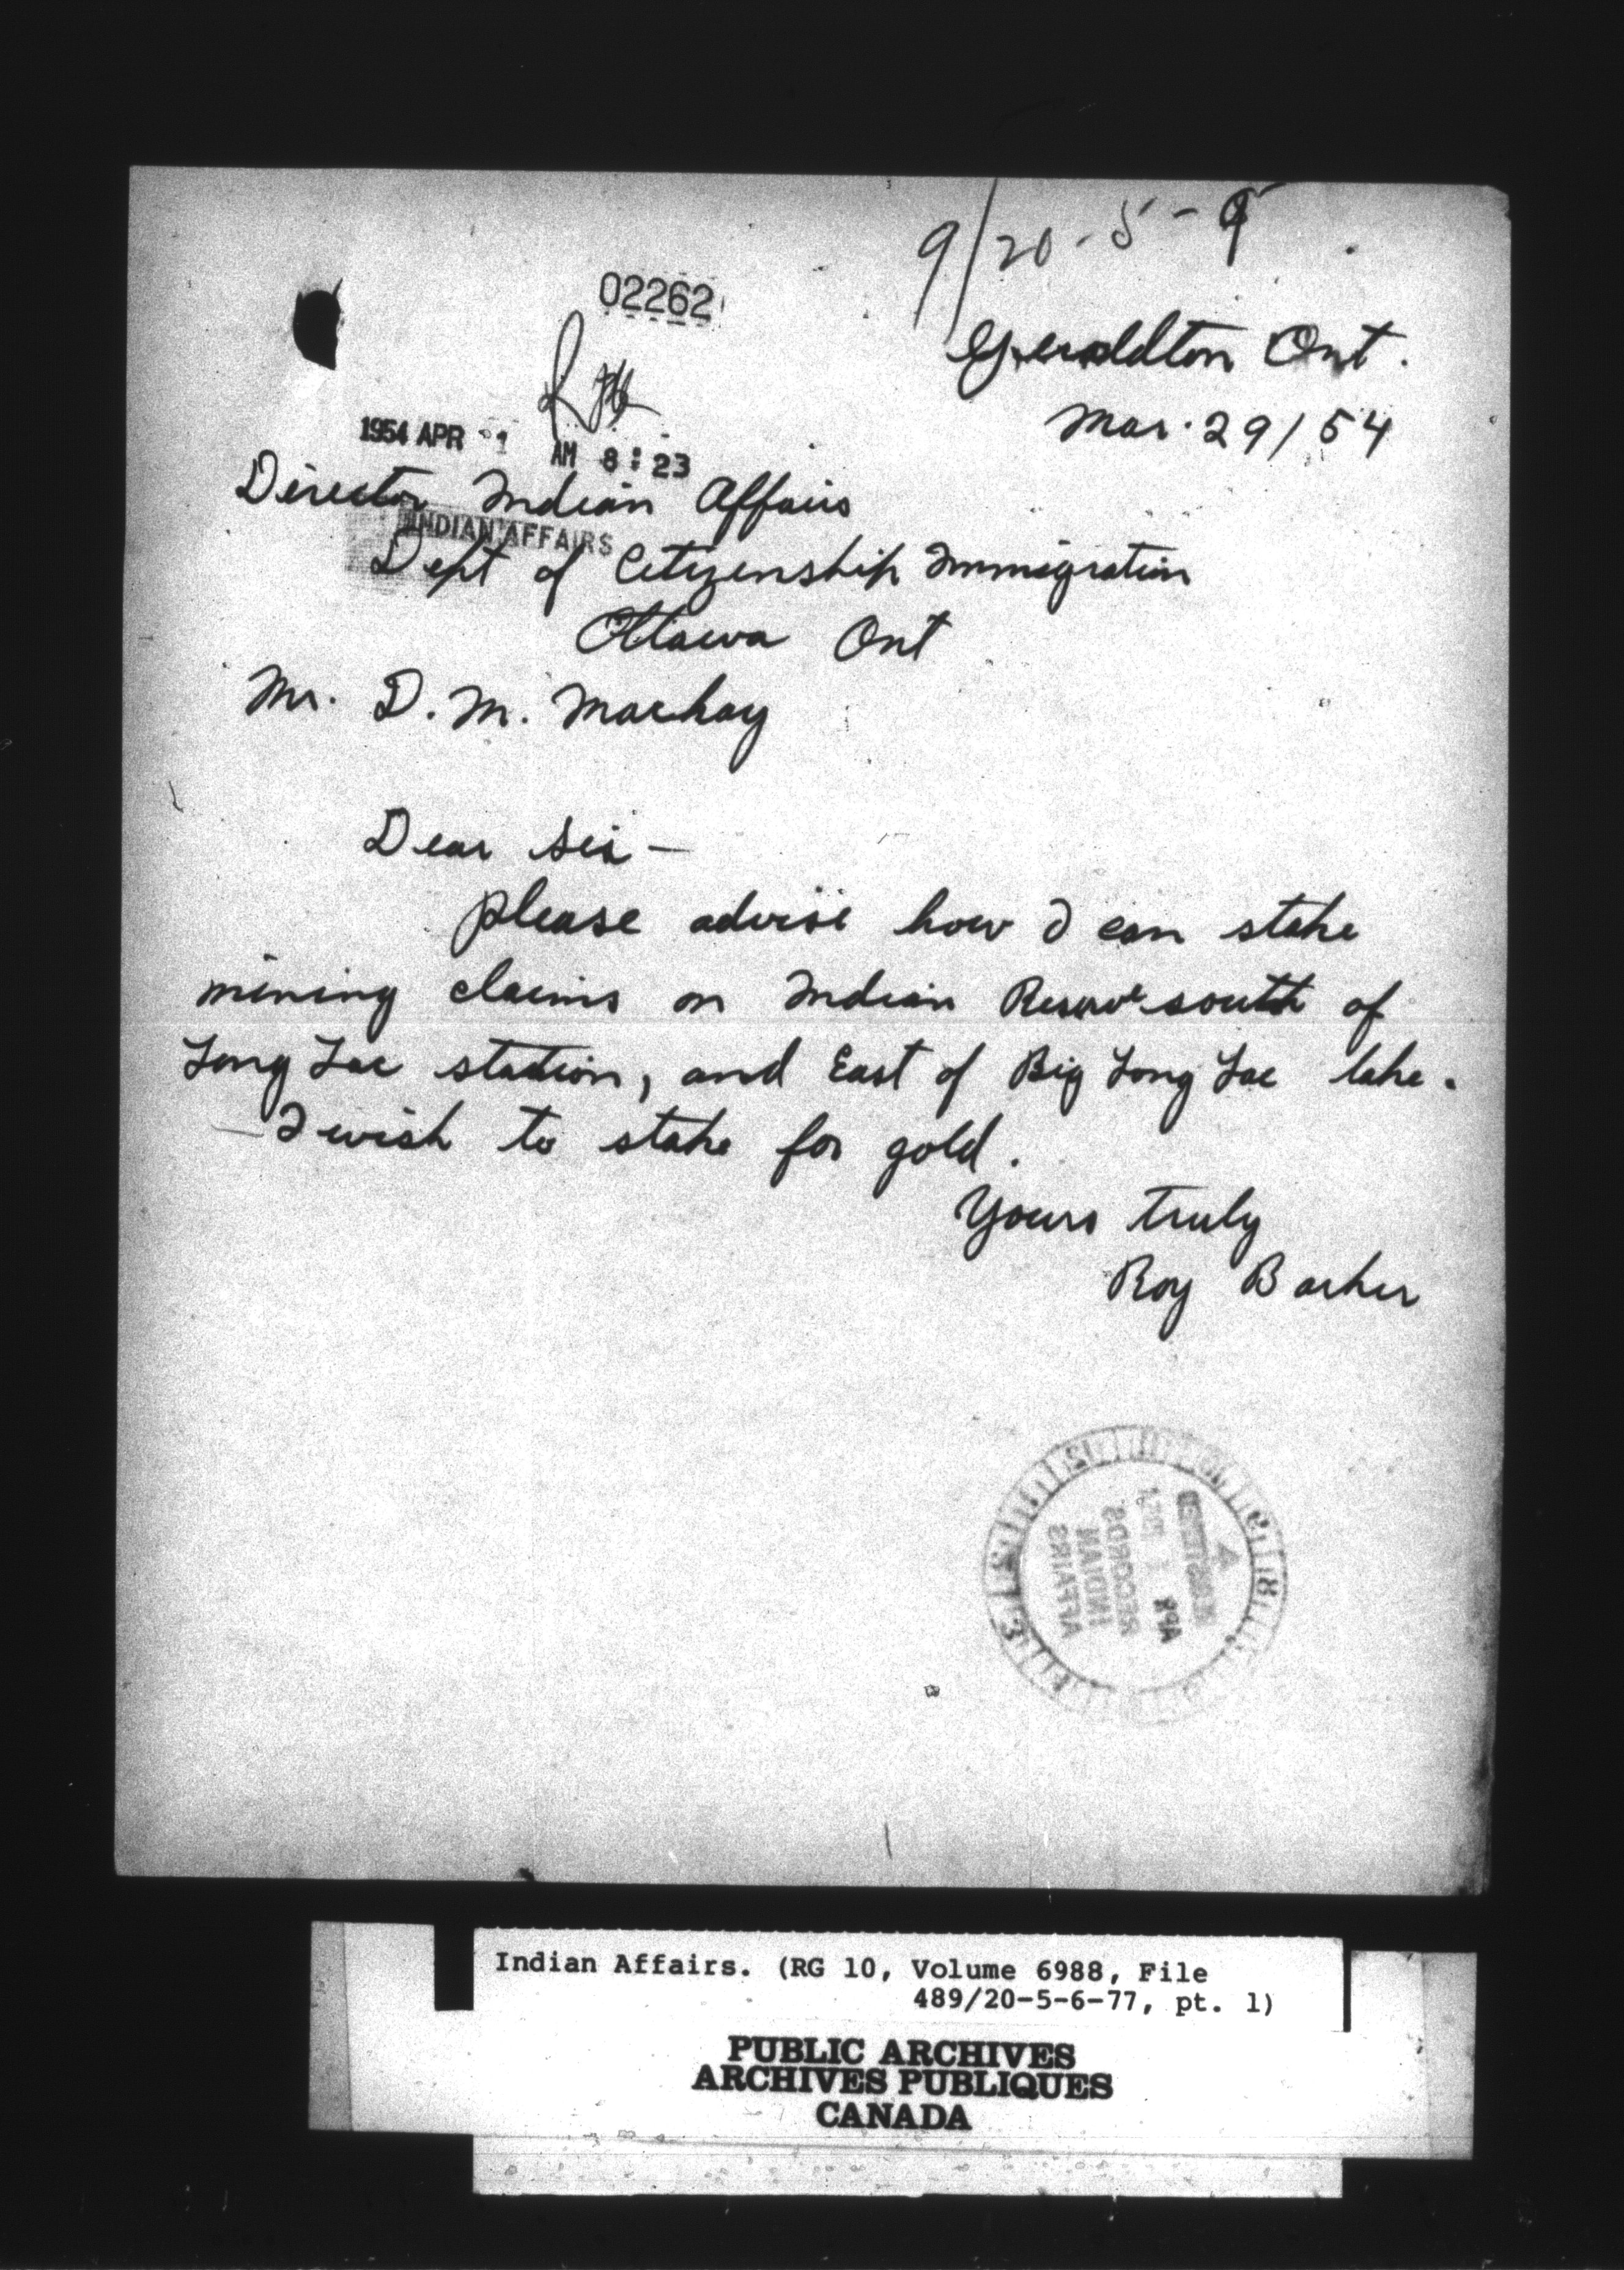 9/20-5-9
02262
Geraldton Ont.
Mar. 29/54
1954 APR 1 AM 8:23
Director Indian Affairs
INDIAN AFFAIRS
Dept of Citizenship Immigration
Ottawa Ont
Mr. D. M. Mackay
Dear Sir —
please advise how I can stake
mining claims on Indian Reserve south of
Long Lac station, and East of Big Long Lac lake.
— I wish to stake for gold.
Yours truly
Roy Barker
RECORDS
INDIAN
AFFAIRS
Indian Affairs. (RG 10, Volume 6988, File
489/20-5-6-77, pt. 1)
PUBLIC ARCHIVES
ARCHIVES PUBLIQUES
CANADA